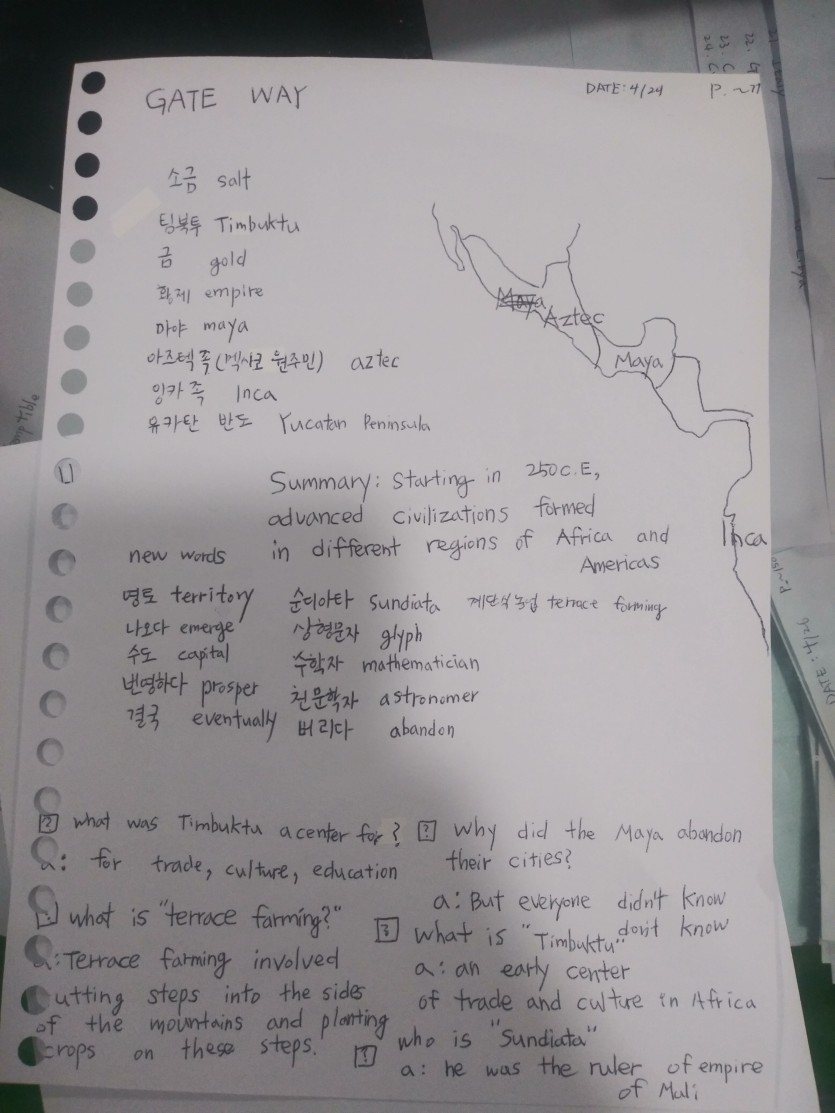 GATE WAY
DATE: 4/24 P. ~77
소금 salt
팀북투 Timbuktu
금 gold
황제 empire
마야 maya
아즈텍 족 (멕시코 원주민) aztec
잉카 족 Inca
유카탄 반도 Yucatan Peninsula
Maya
Aztec
Maya
Inca
Summary: starting in 250 C.E,
advanced civilizations formed
in different regions of Africa and
Americas
new words
영토 territory
나오다 emerge
수도 capital
번영하다 prosper
결국 eventually
순디아타 sundiata
상형문자 glyph
수학자 mathematician
천문학자 astronomer
버리다 abandon
계단식 농업 terrace forming
? what was Timbuktu a center for?
a: for trade, culture, education
? what is "terrace farming?"
a: Terrace farming involved
cutting steps into the sides
of the mountains and planting
crops on these steps.
? Why did the Maya abandon
their cities?
a: But everyone didn't know
don't know
? What is "Timbuktu"
a: an early center
of trade and culture in Africa
? who is "Sundiata"
a: he was the ruler of empire
of Mali
DATE: 4/26